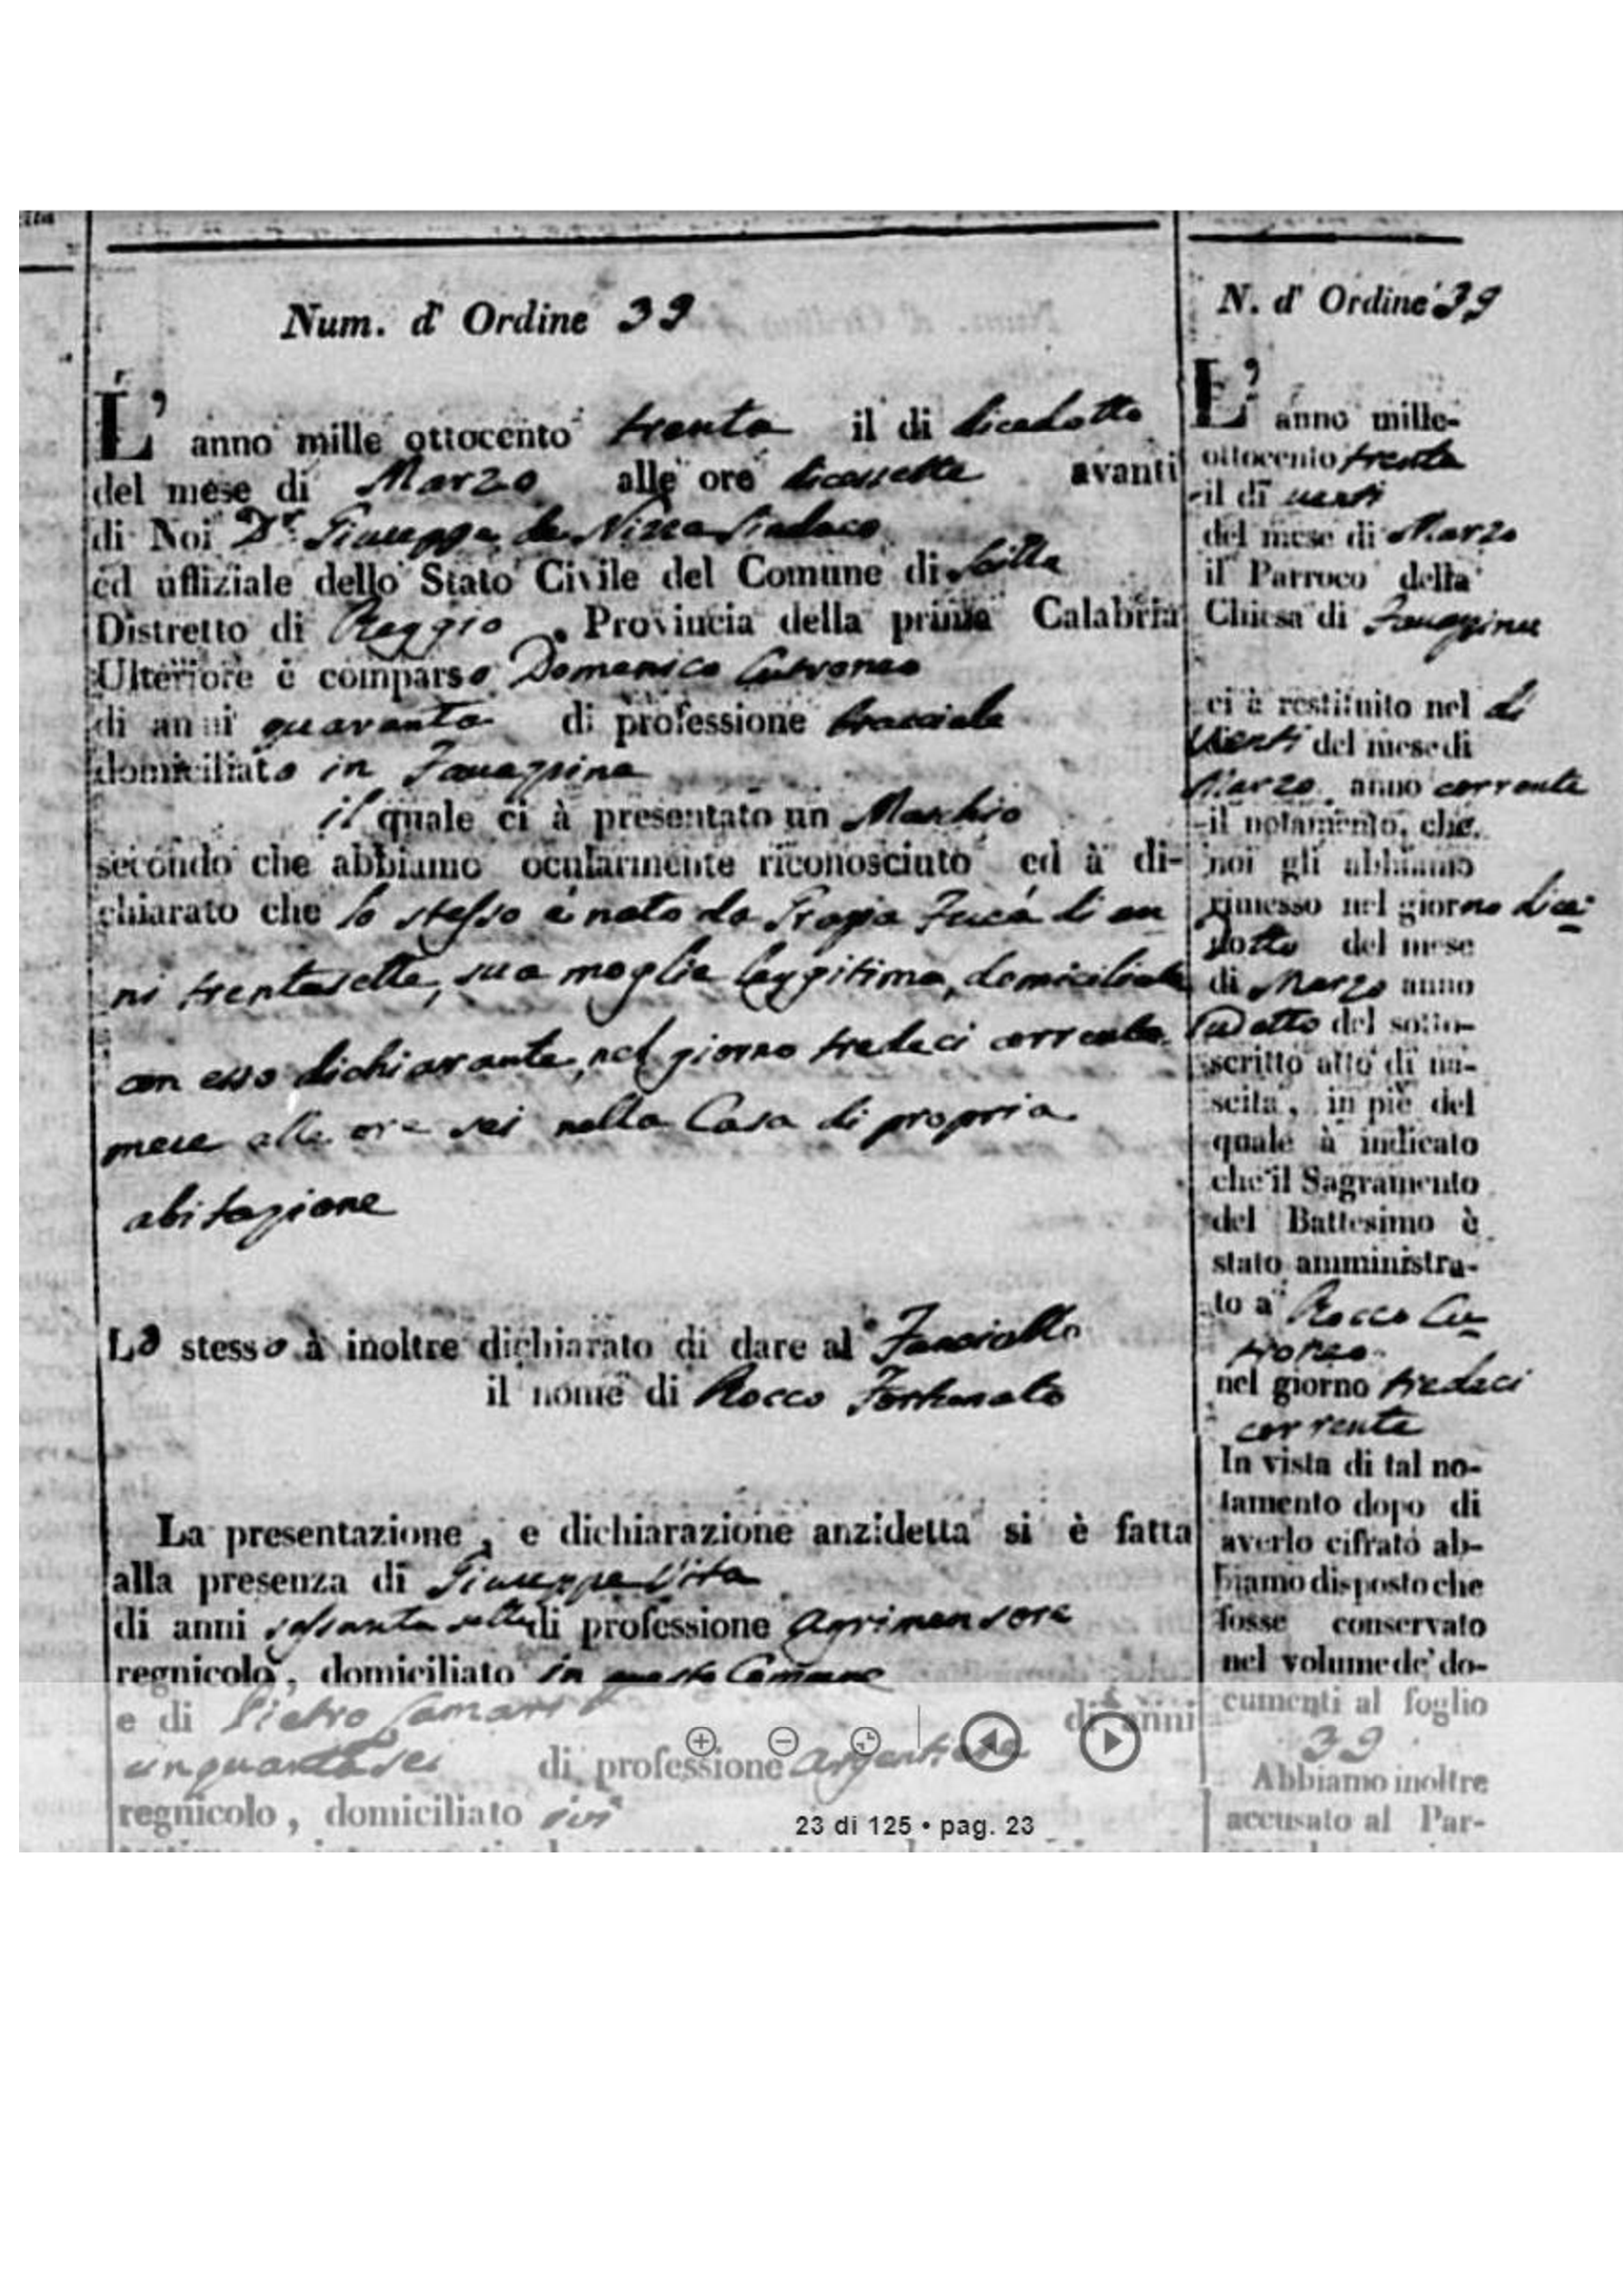 Num. d' Ordine 39
L' anno mille ottocento trenta il di diciadotto
del mese di Marzo alle ore diciassette avanti
di Noi Dr. Giuseppe de Nizza Sindaco
ed uffiziale dello Stato Civile del Comune di Scilla
Distretto di Reggio . Provincia della prima Calabria
Ulteriore è comparso Domenico Cutroneo
di anni quaranta di professione bracciale
domiciliato in
il quale ci à presentato un Maschio
secondo che abbiamo ocularmente riconosciuto ed à di-
chiarato che lo stesso è nato da Grazia Fucà di an
ni trentasette, sua moglie leggitima, domiciliata
con esso dichiarante, nel giorno tredeci corrente
mese alle ore sei nella Casa di propria
abitazione
Lo stesso à inoltre dichiarato di dare al Fanciullo
il nome di Rocco Fortunato
La presentazione , e dichiarazione anzidetta si è fatta
alla presenza di Giuseppe Vita
di anni sessanta sette di professione Agrimensore
regnicolo, domiciliato in questo Comune
e di Pietro di anni
cinquantasei di professione Argentiere
regnicolo, domiciliato ivi
N. d' Ordine 39
L' anno mille-
ottocento trenta
il di venti
del mese di Marzo
il Parroco della
Chiesa di
ci à restituito nel di
Venti del mese di
Marzo anno corrente
il notamento, che
noi gli abbiamo
rimesso nel giorno dicia-
dotto del mese
di Marzo anno
sudetto del sotto-
scritto atto di na-
scita, in piè del
quale à indicato
che il Sagramento
del Battesimo è
stato amministra-
to a Rocco Cu-
troneo
nel giorno tredeci
corrente
In vista di tal no-
tamento dopo di
averlo cifrato ab-
biamo disposto che
fosse conservato
nel volume de' do-
cumenti al foglio
39
Abbiamo inoltre
accusato al Par-
23 di 125 • pag. 23